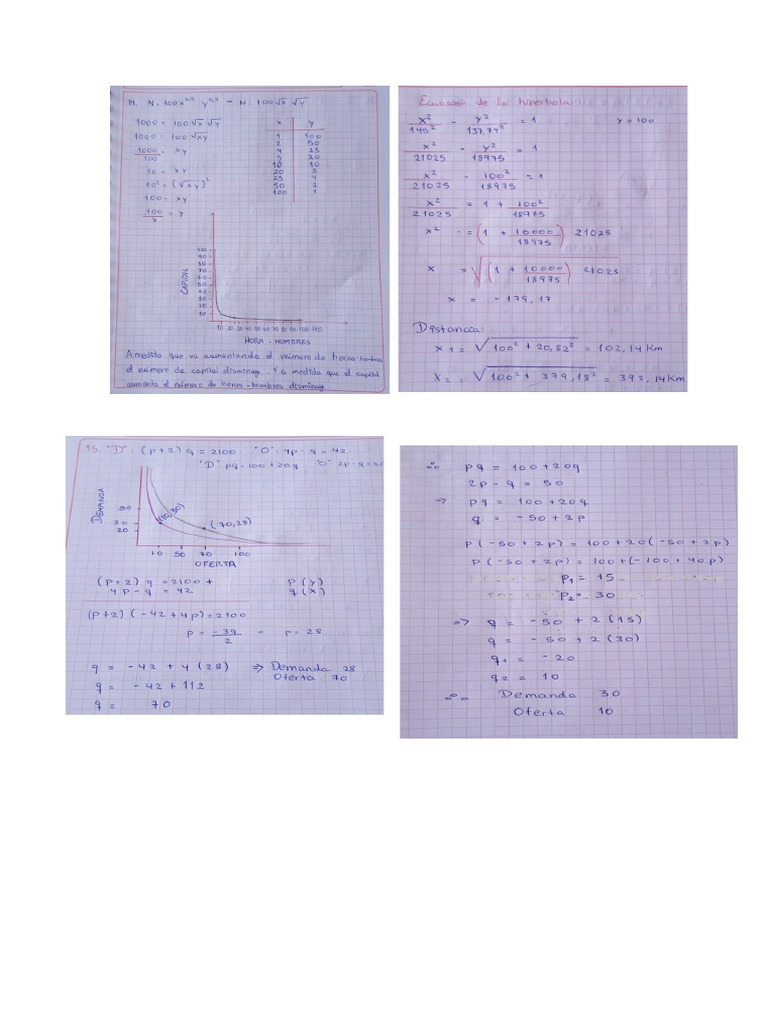 14. N = 100x^0,5 y^0,5 - N: 100√x √y
1000 = 100√x √y
1000 = 100 √xy
1000/100 = xy
10 = xy
10² = (√xy)²
100 = xy
100/x = y
x y
1 100
2 50
4 25
5 20
10 10
20 5
25 4
50 2
100 1
CAPITAL
100
90
80
70
60
50
40
30
20
10
10 20 30 40 50 60 70 80 90 100 110
HORA - HOMBRES
A medida que va aumentando el número de horas-hombres
el número de capital disminuy. Y a medida que el capital
aumenta el número de horas-hombres disminuy
Ecuación de la hiperbola
x²/145² - y²/137,74² = 1 y = 100
x²/21025 - y²/18975 = 1
x²/21025 - 100²/18975 = 1
x²/21025 = 1 + 100²/18975
x² = (1 + 10000/18975) 21025
x = √(1 + 10000/18975) 21025
x = - 179,17
Distancia:
x1 = √100² + 20,82² = 102,14 Km
x2 = √100² + 379,18² = 392,14 Km
"D": (p+2) q = 2100 "O": 4p - q = 42
"D" pq = 100 + 20q "O": 2p - q = 50
DEMANDA
50
30
20
(10,30)
(70,28)
10 50 70 100
OFERTA
(p+2) q = 2100 + p (y)
4p - q = 42 q (x)
(p+2) (-42 + 4p) = 2100
p = -39/2 p = 28
q = -42 + 4 (28) => Demanda 28
q = -42 + 112 Oferta 70
q = 70
∴ pq = 100 + 20q
2p - q = 50
=> pq = 100 + 20q
q = -50 + 2p
p(-50 + 2p) = 100 + 20(-50 + 2p)
p(-50 + 2p) = 100 + (-100 + 40p)
p1 = 15
p2 = 30
=> q = -50 + 2 (15)
q = -50 + 2 (30)
q1 = -20
q2 = 10
∴ Demanda 30
Oferta 10